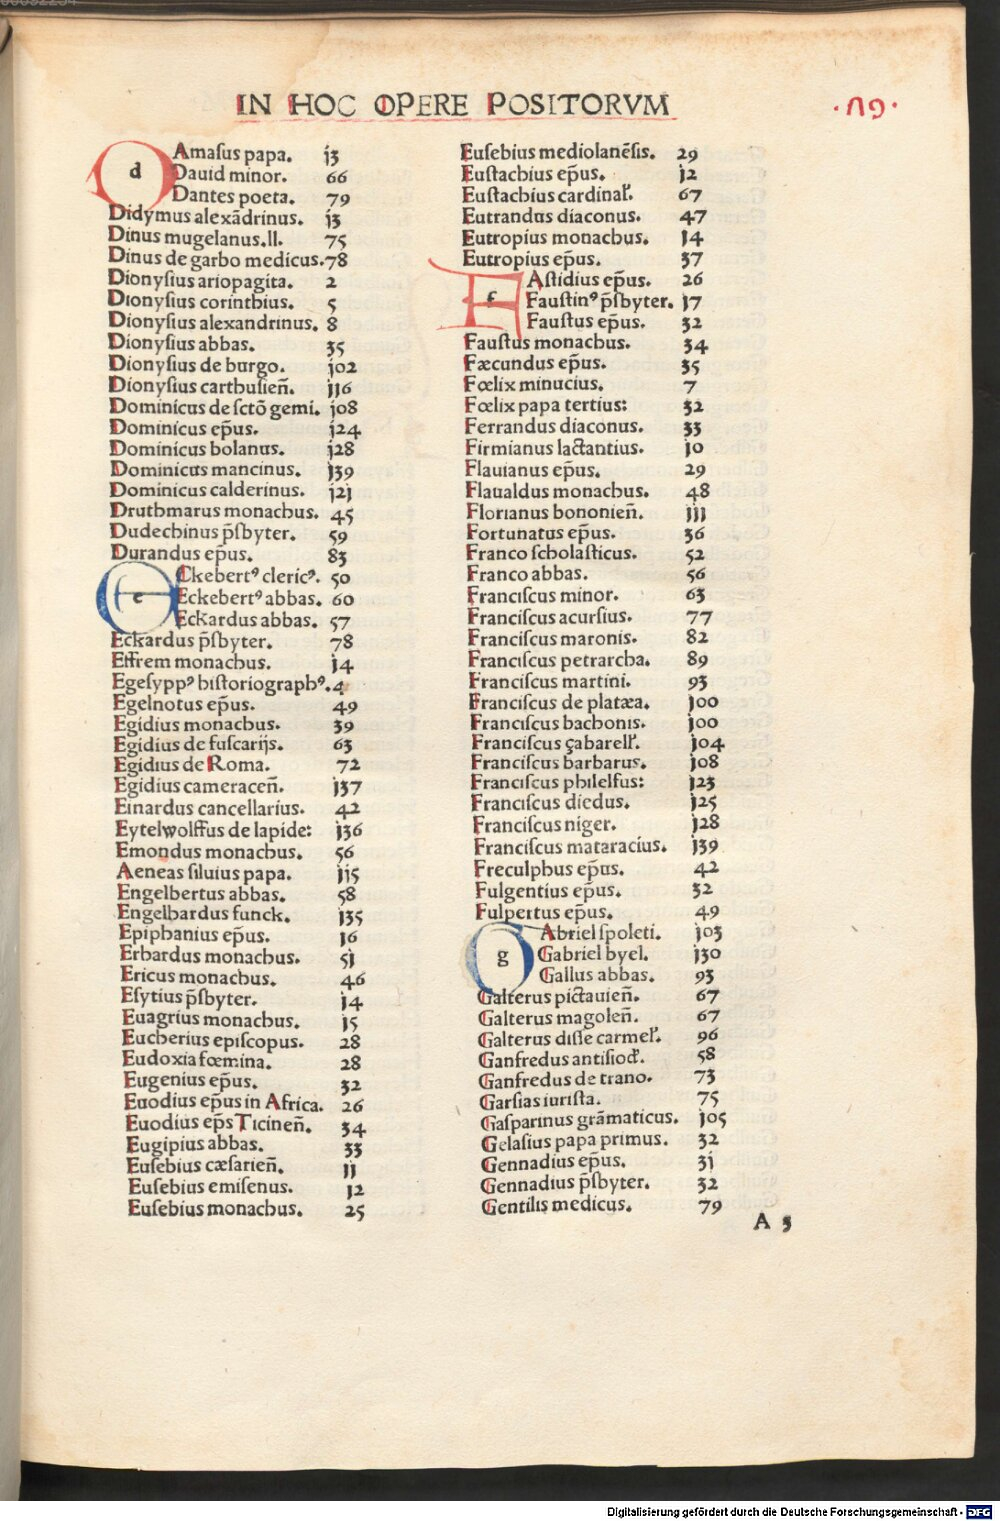 IN HOC OPERE POSITORVM
d Amasus papa. j3
Dauid minor. 66
Dantes poeta. 79
Didymus alexãdrinus. j3
Dinus mugelanus.ll. 75
Dinus de garbo medicus. 78
Dionysius ariopagita. 2
Dionysius corinthius. 5
Dionysius alexandrinus. 8
Dionysius abbas. 35
Dionysius de burgo. j02
Dionysius carthusieñ. jj6
Dominicus de sctõ gemi. j08
Dominicus ep̃us. j24
Dominicus bolanus. j28
Dominicus mancinus. j39
Dominicus calderinus. j2j
Druthmarus monachus. 45
Dudechinus p̃sbyter. 59
Durandus ep̃us. 83
e Ckebertꝰ clericꝰ. 50
Eckebertꝰ abbas. 60
Eckardus abbas. 57
Eckardus p̃sbyter. 78
Effrem monachus. j4
Egesyppꝰ historiographꝰ. 4
Egelnotus ep̃us. 49
Egidius monachus. 39
Egidius de fuscarijs. 63
Egidius de Roma. 72
Egidius cameraceñ. j37
Einardus cancellarius. 42
Eytelwolffus de lapide: j36
Emondus monachus. 56
Aeneas siluius papa. jj5
Engelbertus abbas. 58
Engelhardus funck. j35
Epiphanius ep̃us. j6
Erhardus monachus. 5j
Ericus monachus. 46
Esytius p̃sbyter. j4
Euagrius monachus. j5
Eucherius episcopus. 28
Eudoxia fœmina. 28
Eugenius ep̃us. 32
Euodius ep̃us in Africa. 26
Euodius ep̃s Ticineñ. 34
Eugipius abbas. 33
Eusebius cæsarieñ. jj
Eusebius emisenus. j2
Eusebius monachus. 25
Eusebius mediolanẽsis. 29
Eustachius ep̃us. j2
Eustachius cardinal̃. 67
Eutrandus diaconus. 47
Eutropius monachus. j4
Eutropius ep̃us. 37
f Astidius ep̃us. 26
Faustinꝰ p̃sbyter. j7
Faustus ep̃us. 32
Faustus monachus. 34
Fæcundus ep̃us. 35
Fœlix minucius. 7
Fœlix papa tertius: 32
Ferrandus diaconus. 33
Firmianus lactantius. j0
Flauianus ep̃us. 29
Flaualdus monachus. 48
Florianus bononieñ. jjj
Fortunatus ep̃us. 36
Franco scholasticus. 52
Franco abbas. 56
Franciscus minor. 63
Franciscus acursius. 77
Franciscus maronis. 82
Franciscus petrarcha. 89
Franciscus martini. 93
Franciscus de platæa. j00
Franciscus bachonis. j00
Franciscus çabarell̃. j04
Franciscus barbarus. j08
Franciscus philelfus: j23
Franciscus diedus. j25
Franciscus niger. j28
Franciscus mataracius. j39
Freculphus ep̃us. 42
Fulgentius ep̃us. 32
Fulpertus ep̃us. 49
g Abriel spoleti. j03
Gabriel byel. j30
Gallus abbas. 93
Galterus pictauieñ. 67
Galterus magoleñ. 67
Galterus disse carmel̃. 96
Ganfredus antisiod̃. 58
Ganfredus de trano. 73
Garsias iurista. 75
Gasparinus grãmaticus. j05
Gelasius papa primus. 32
Gennadius ep̃us. 3j
Gennadius p̃sbyter. 32
Gentilis medicus. 79
A 3
Digitalisierung gefördert durch die Deutsche Forschungsgemeinschaft - DFG